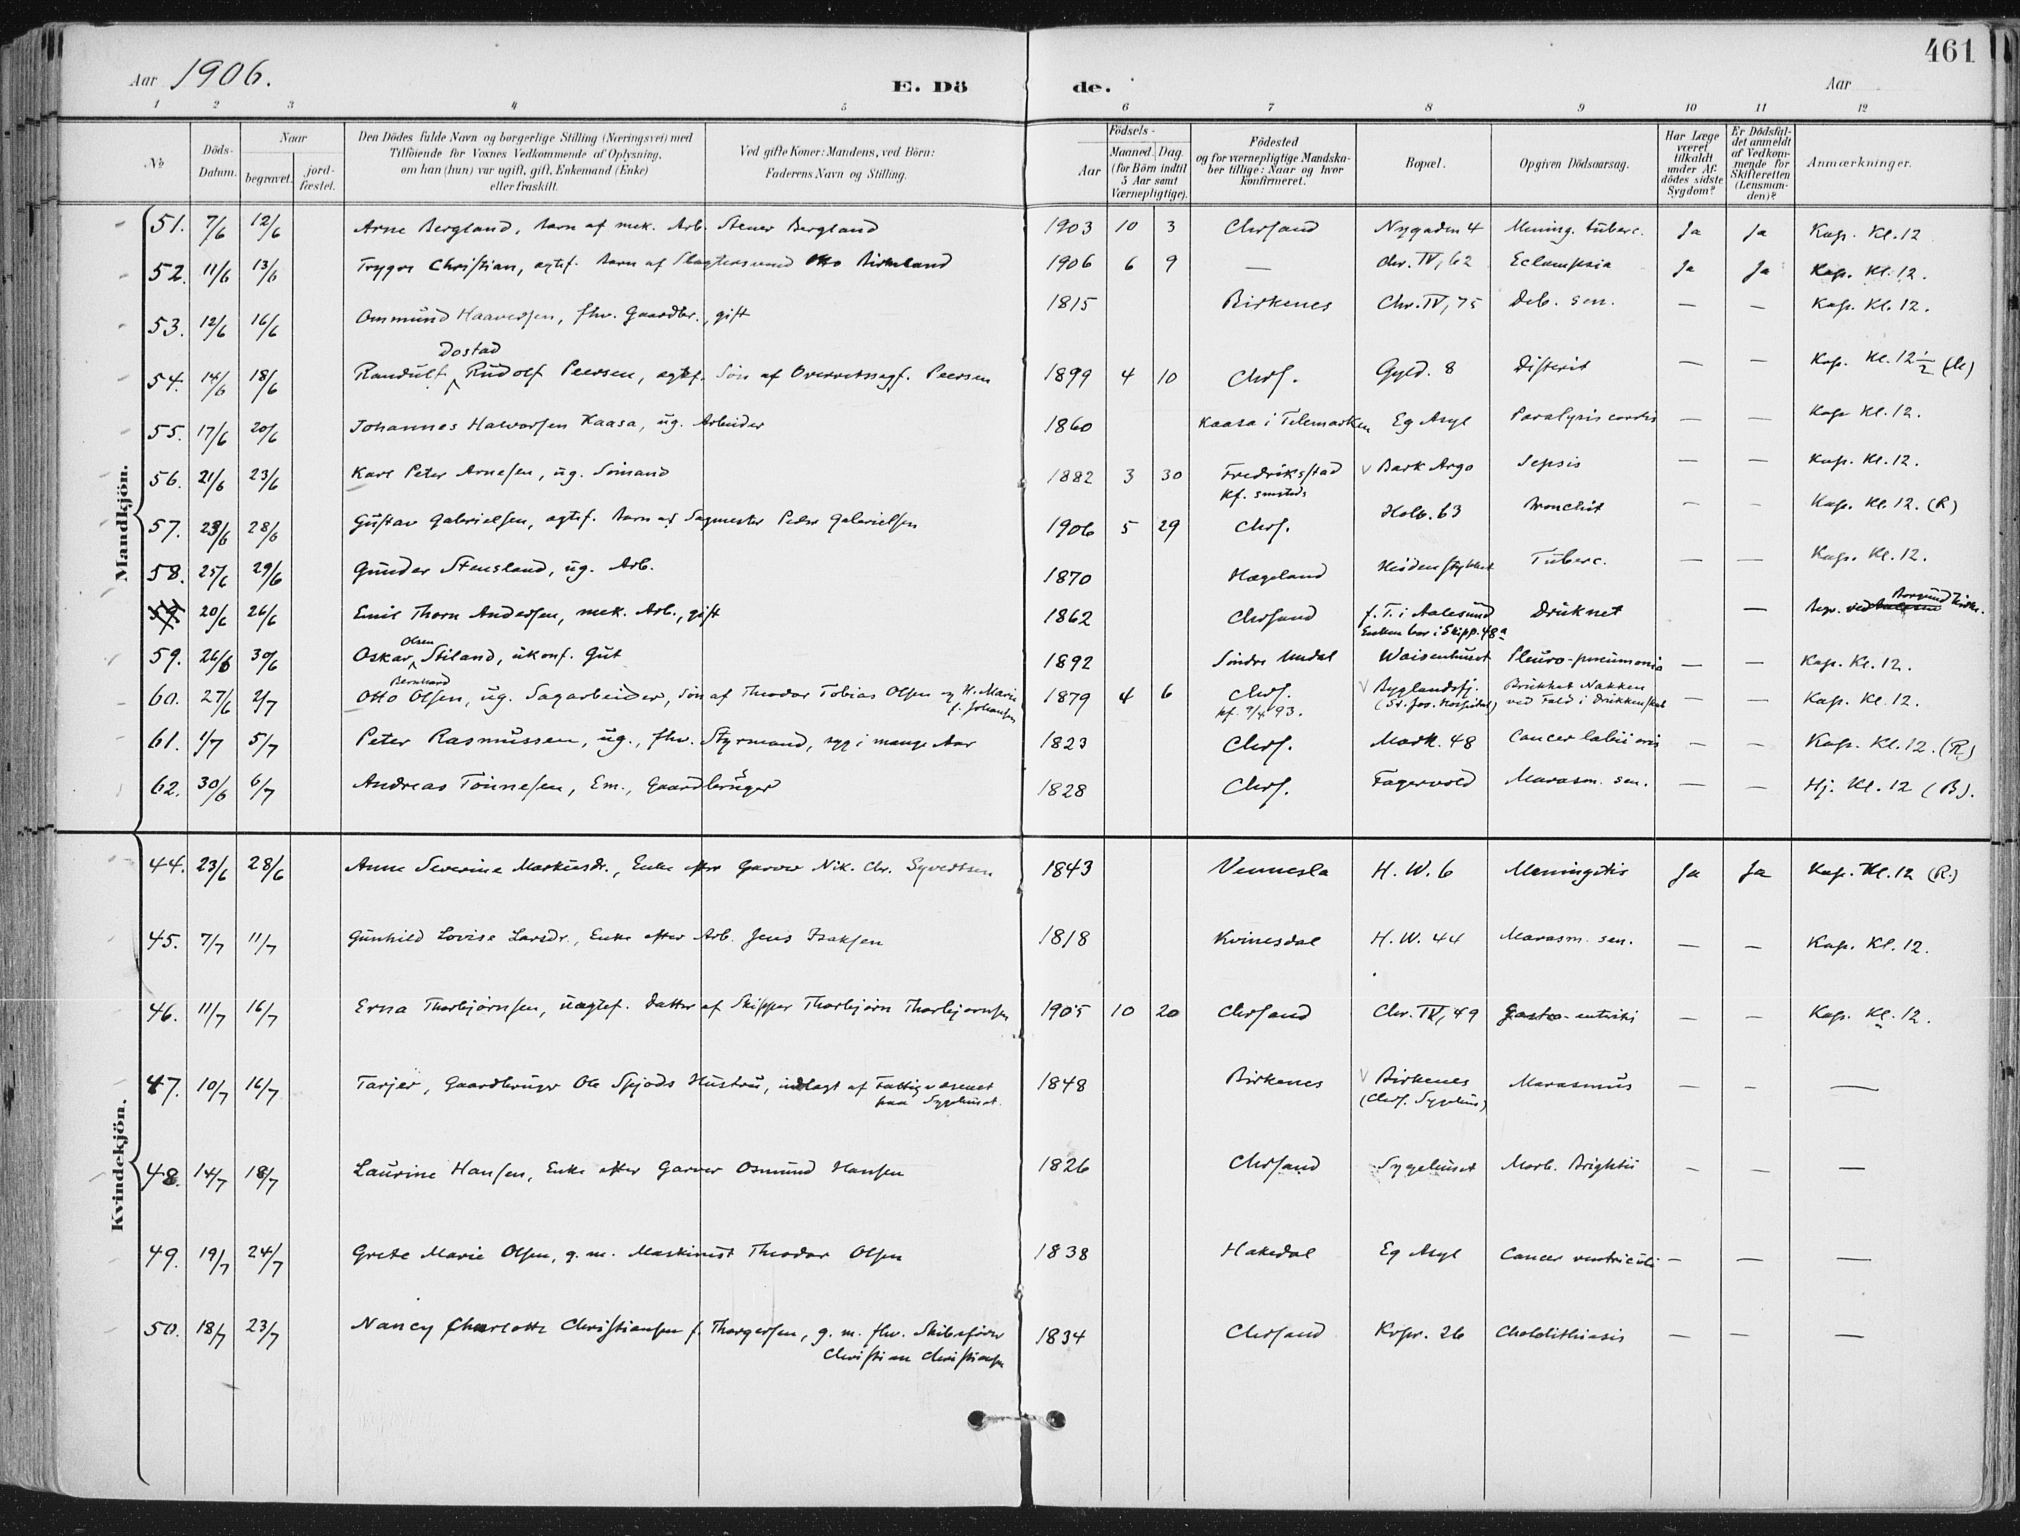 461
Aar 1906. E. Dö de. Aar
1 2 3 4 5 6 7 8 9 10 11 12
No
Döds-Datum.
Naar begravet. jord-fæstet.
Den Dödes fulde Navn og borgerlige Stilling (Næringsvei) med Tilföiende for Voxnes Vedkommende af Oplysning, om han (hun) var ugift, gift, Enkemand (Enke) eller fraskilt.
Ved gifte Koner: Mandens, ved Börn: Faderens Navn og Stilling.
Födsels-
Aar Maaned. Dag. (for Börn indtil 5 Aar samt Værnepligtige).
Födested og for værnepligtige Mandska-ber tillige: Naar og hvor Konfirmeret.
Bopæl.
Opgiven Dödsaarsag.
Har Læge været tilkaldt under Af-dödes sidste Sygdom?
Er Dödsfal-det anmeldt af Vedkom-mende for Skifteretten (Lensman-den)?
Anmærkninger.
Mandkjön.
51. 7/6 12/6 Arne Bergland, barn af mek. Arb. Stener Bergland 1903 10 3 Chrsand Nygaden 4 Mening. tuberc. Ja Ja Kap. Kl. 12
52. 11/6 13/6 Trygve Christian, ægtef. Barn af Slagtersvend Otto Birkeland 1906 6 9 — Chr. IV, 62 Eclampsia Ja Ja Kap. Kl. 12.
53. 12/6 16/6 Ommund Haaversen, fhv. Gaardbr., gift 1815 Birkenes Chr. IV, 75 Deb. sen. — — Kap. Kl. 12.
Dostad
54. 14/6 18/6 Randulf Rudolf Peersen, ægtef. Søn af Peersen 1899 4 10 Chrs. Gyld. 8 Difterit — — Kap. Kl. 12 1/2
55. 17/6 20/6 Johannes Halvorsen Kaasa, ug. Arbeider 1860 Kaasa i Telemarken Eg Asyl Paralysis cordis — — Kap Kl. 12.
56. 21/6 23/6 Karl Peter Arnesen, ug. Sømand 1882 3 30 Fredriksstad V Bark Argo Sepsis — — Kap. Kl. 12.
Kf. smsteds
57. 23/6 28/6 Gustav Gabrielsen, ægtef. barn af Sagmester Peder Gabrielsen 1906 5 29 Chrs. Holb. 63 Bronchit — — Kap. Kl. 12. (R)
58. 25/6 29/6 Gunder Stensland, ug. Arb. 1870 Hægeland Tuberc. — — Kap. Kl. 12.
59. 20/6 26/6 Emil Thorn Andersen, mek. Arb., gift 1862 Chrsand f. T. i Aalesund Druknet — Begr. ved Borgund Kirke.
Enken bor i Skipp. 48a
Olsen
59. 26/6 30/6 Oskar Stiland, ukonf. Gut 1892 Søndre Undal Waisenhuset Pleuro-pneumonia — — Kap. Kl. 12.
Bernhard
60. 27/6 2/7 Otto Olsen, ug. Sagarbeider, søn af Theodor Tobias Olsen og H. Marie 1879 4 6 Chrs. V Byglandsfj. Brukket Nakken — — Kap. Kl. 12.
f. Johansen kf. 9/4 93. (St. Jos. Hospital) ved Fald i Drukkenskab
61. 1/7 5/7 Peter Rasmussen, ug., fhv. Styrmand, syg i mange Aar 1823 Chrs. Mark. 48 Cancer labii oris — — Kap. Kl. 12. (R)
62. 30/6 6/7 Andreas Tönnesen, Em., Gaardbruger 1828 Chrs. Fagervold Marasm. sen. — — Hj. Kl. 12 (B).
Kvindekjön.
44. 23/6 28/6 Anne Severine Markusdr., Enke efter Garver Nik. Chr. Syvertsen 1843 Vennesla H. W. 6 Meningitis Ja Ja Kap. Kl. 12 (R.)
45. 7/7 11/7 Gunhild Lovise Larsdr., Enke efter Arb. Jens Isaksen 1818 Kvinesdal H. W. 44 Marasm. sen. — — Kap. Kl. 12.
46. 11/7 16/7 Erna Thorbjörnsen, uægtef. Datter af Skipper Thorbjörn Thorbjörnsen 1905 10 20 Chrsand Chr. IV, 49 Gastro-enteritis — — Kap. Kl. 12.
47. 10/7 16/7 Tarjer, Gaardbruger Ole Spjods Hustru, indlagt af Fattigvæsenet 1848 Birkenes V Birkenes Marasmus — — —
paa Sygehuset. (Chrs. Sygehus)
48. 14/7 18/7 Laurine Hansen, Enke efter Garver Osmund Hansen 1826 Chrsand Sygehuset Morb. Brightii — — —
49. 19/7 24/7 Grete Marie Olsen, g. m. Maskinist Theodor Olsen 1838 Hakedal Eg Asyl Cancer ventriculi — — —
50. 18/7 23/7 Nancy Charlotte Christiansen f. Thorgersen, g. m. fhv. Skibsfører 1834 Chrsand Kspr. 26 Cholelithiasis — — —
Christian Christiansen